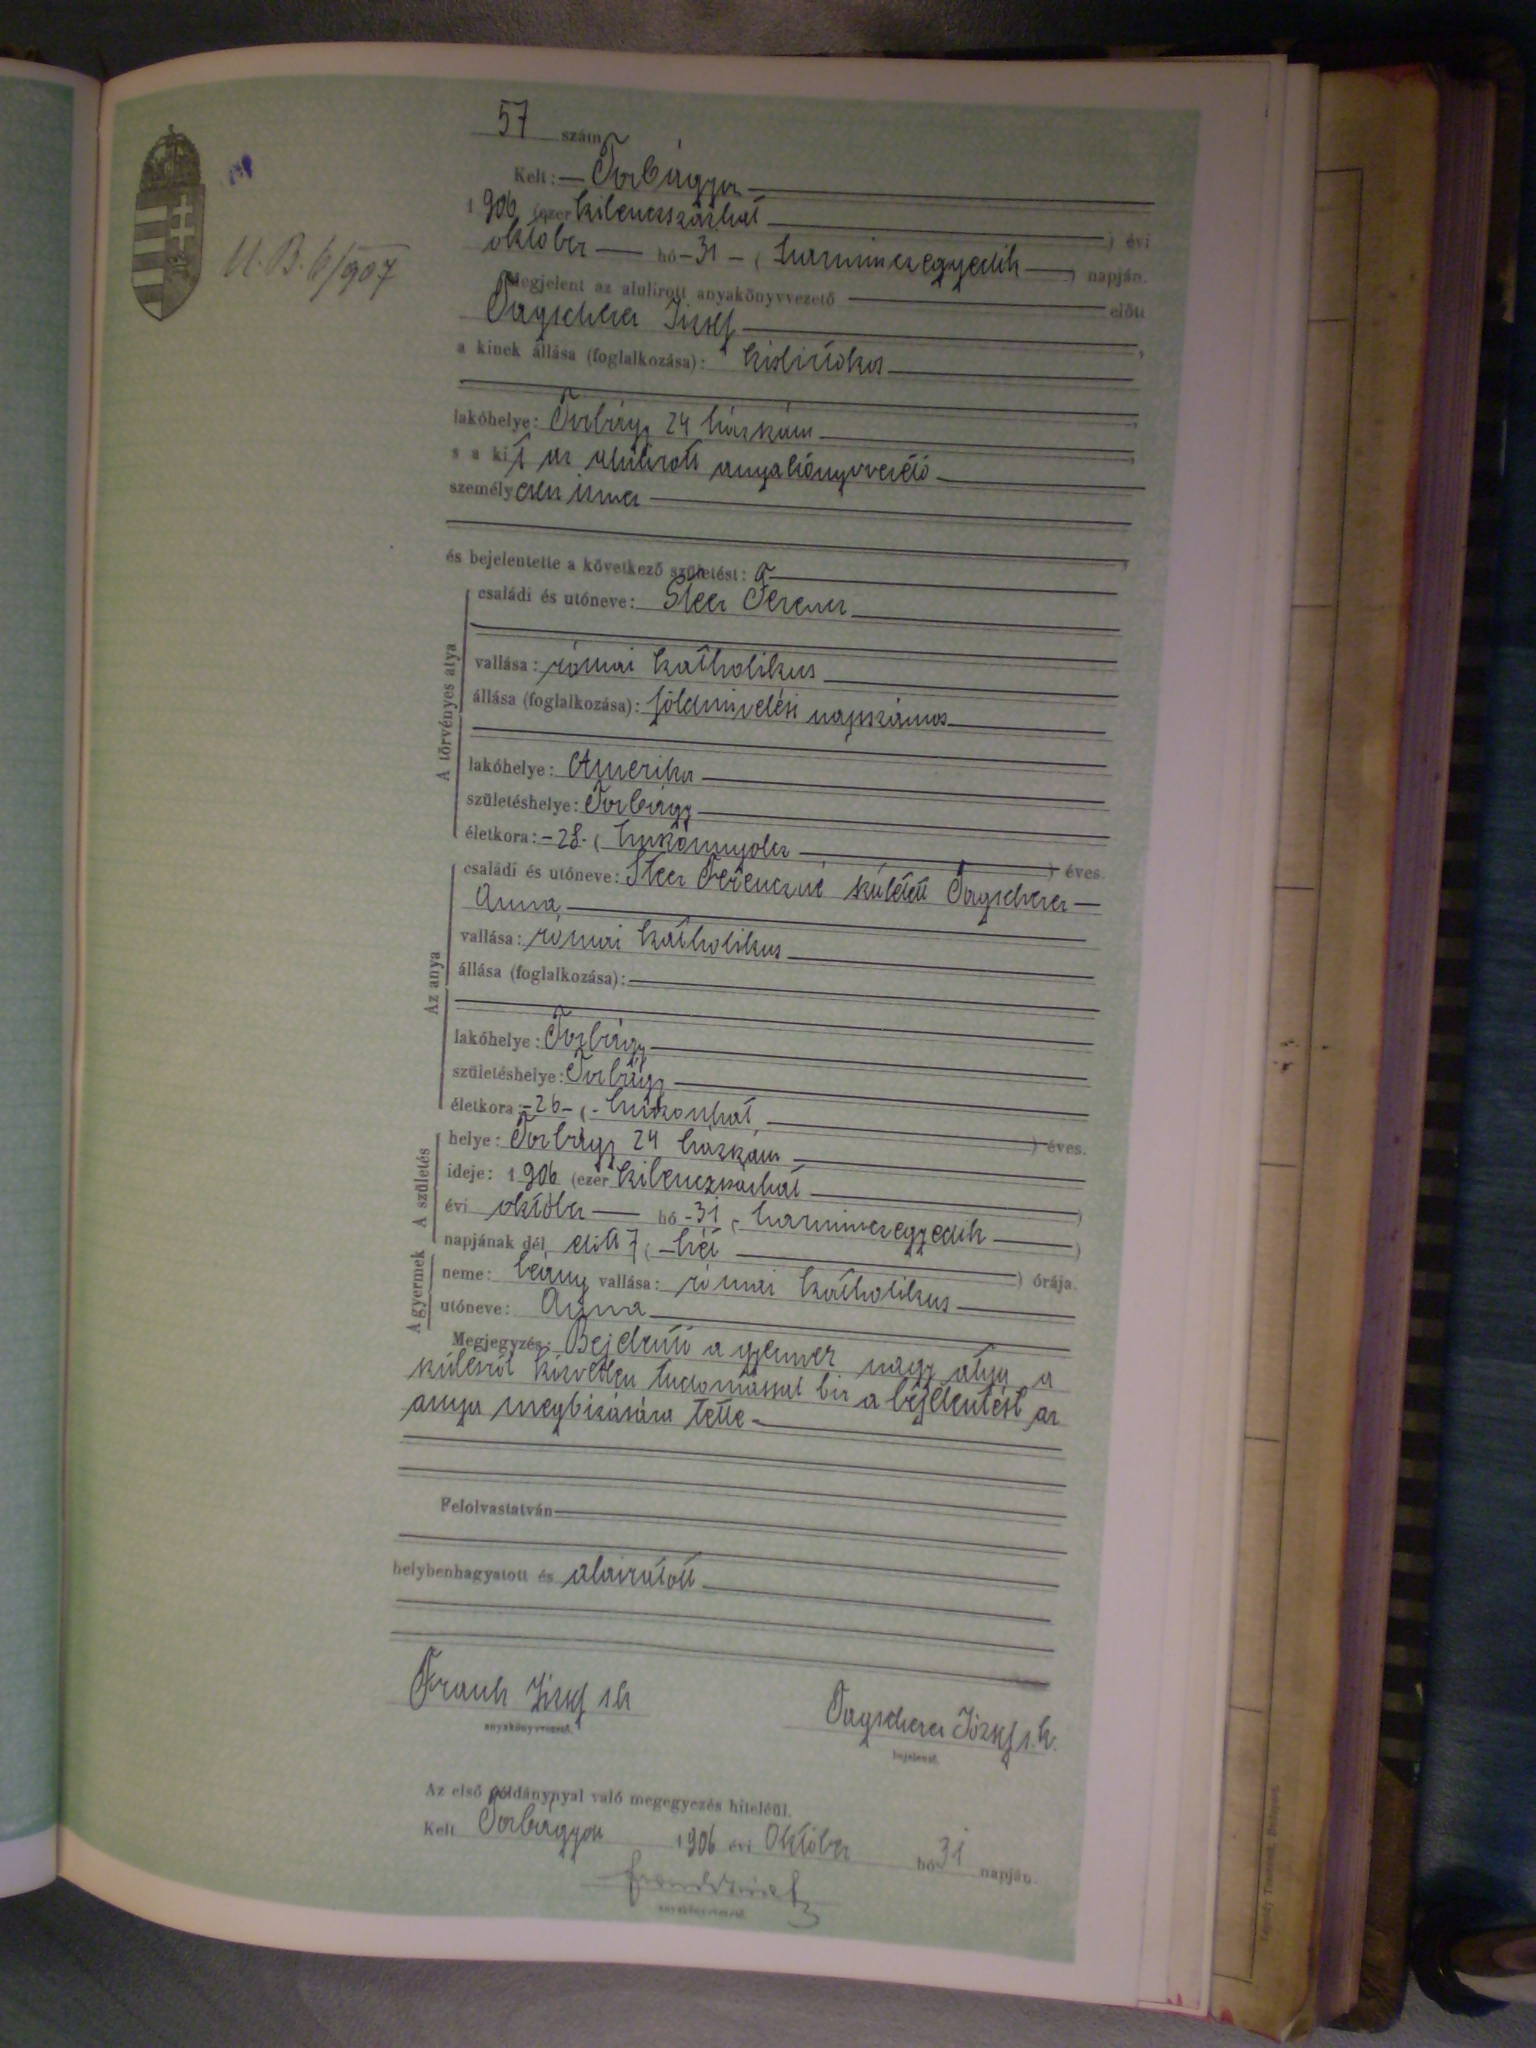 57 szám
U. B. 6/907
Kelt: Torbágyon
1906 (ezer kilenczszázhat) évi
október hó 31 (harminczegyedik) napján.
Megjelent az alulirott anyakönyvvezető előtt
Tagscherer József,
a kinek állása (foglalkozása): kisbirtokos
lakóhelye: Torbágy 24 házszám
s a kit az alulirott anyakönyvvezető
személyesen ismer
és bejelentette a következő születést:
A törvényes atya
családi és utóneve: Steer Ferencz
vallása: római katholikus
állása (foglalkozása): földmivelési napszámos
lakóhelye: Amerika
születéshelye: Torbágy
életkora: -28- (huszonnyolcz) éves.
Az anya
családi és utóneve: Steer Ferenczné született Tagscherer
Anna
vallása: római katholikus
állása (foglalkozása):
lakóhelye: Torbágy
születéshelye: Torbágy
életkora: -26- (huszonhat) éves.
A születés
helye: Torbágy 24 házszám
ideje: 1906 (ezer kilenczszázhat)
évi október hó -31 (harminczegyedik)
napjának dél előtt 7 (hét) órája.
A gyermek
neme: leány vallása: római katholikus
utóneve: Anna
Megjegyzés: Bejelentő a gyermek nagy atyja a
születésről közvetlen tudomással bir a bejelentést az
anya megbizására tette
Felolvastatván
helybenhagyatott és aláiratott
Frank József sk Tagscherer József s.k.
anyakönyvvezető. bejelentő.
Az első példánynyal való megegyezés hiteléül.
Kelt Torbágyon 1906 évi Október hó 31 napján.
anyakönyvvezető.